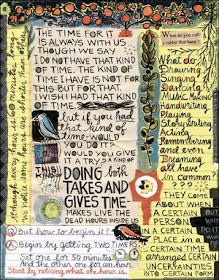 THE TIME FOR IT
IS ALWAYS WITH US
THOUGH WE SAY
I DO NOT HAVE THAT KIND
OF TIME. THE KIND OF
TIME I HAVE IS NOT FOR
THIS BUT FOR THAT.
I WISH I HAD THAT KIND
OF TIME
but if you had
that kind of
time - WOULD
YOU DO IT?
WOULD YOU GIVE
IT A TRY?
DOING
both
TAKES AND
GIVES TIME-
MAKES LIVE THE
DEAD HOURS INSIDE OF
Q But how to begin it?
A Begin by getting TWO TIMERS
Set one for 30 minutes
And the other one for one
Start by noticing what one hour is.
What do
Drawing
Singing
Dancing
Making
Handwriting
Playing
Storywriting
Acting
Remembering
and even
Dreaming
all have
in common
????
THEY
COME ABOUT
WHEN A
CERTAIN
PERSON
IN A CERTAIN
PLACE IN A
CERTAIN TIME
ARRANGES CERTAIN
UNCERTAINTIES
INTO CERTAIN
FORM